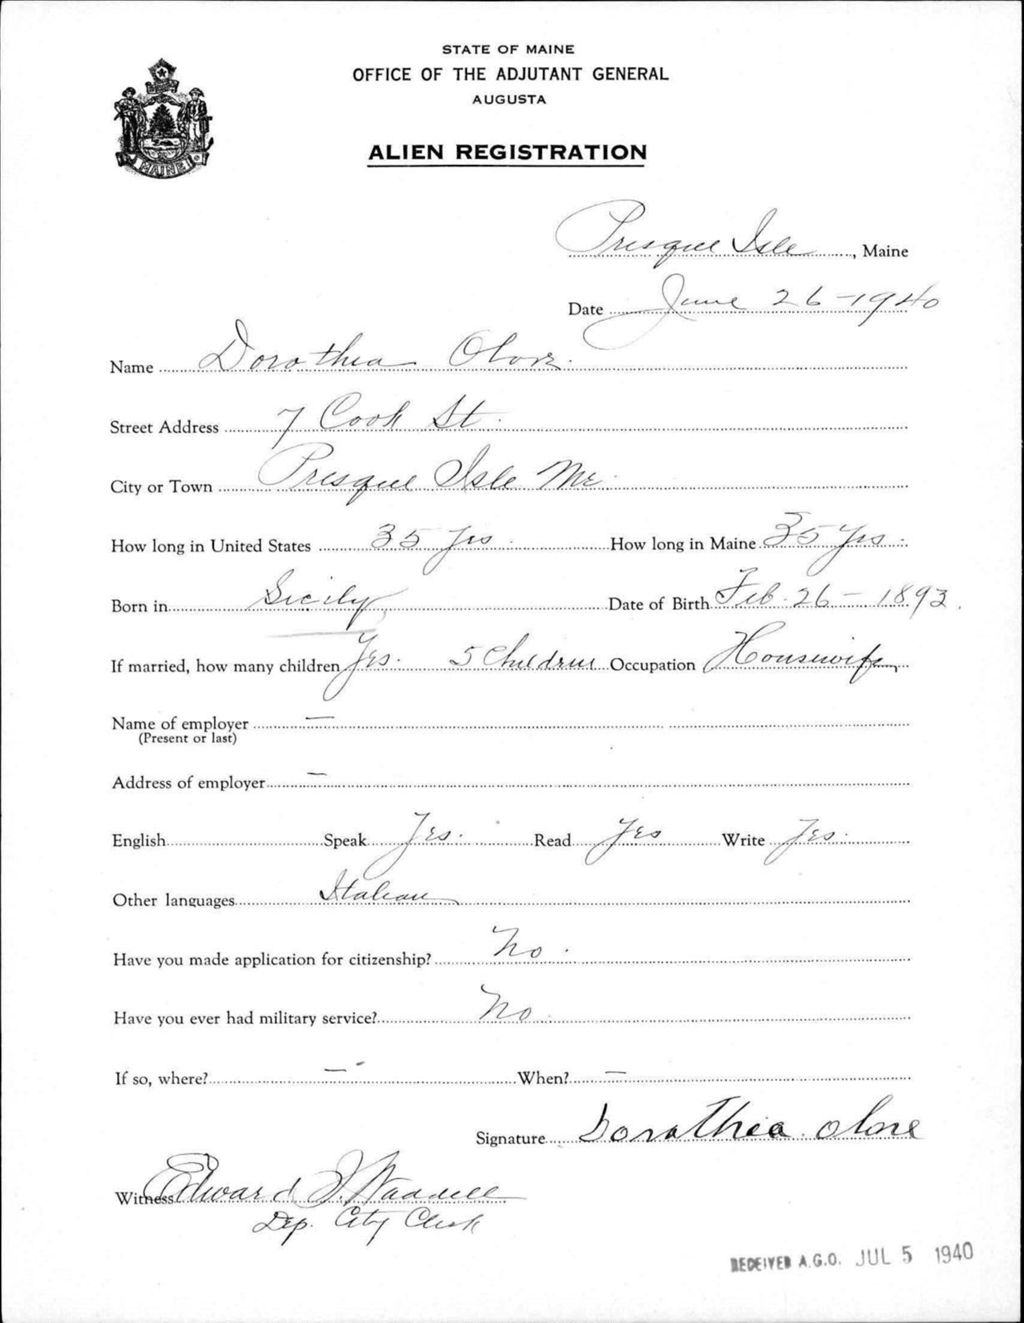 STATE OF MAINE
OFFICE OF THE ADJUTANT GENERAL
AUGUSTA
MAINE
ALIEN REGISTRATION
Presque Isle, Maine
Date June 26-1940
Name Dorothea Olore
Street Address 7 Cook St.
City or Town Presque Isle Me.
How long in United States 35 yrs. How long in Maine 35 yrs.
Born in Sicily Date of Birth Feb. 26 - 1893.
If married, how many children Yes. 5 Children Occupation Housewife
Name of employer —
(Present or last)
Address of employer —
English Speak Yes. Read Yes Write Yes.
Other languages Italian
Have you made application for citizenship? No.
Have you ever had military service? No.
If so, where? — When? —
Signature Dorothea Olore
Witness Edward J. Waddell
Dep. City Clerk
RECEIVED A.G.O. JUL 5 1940